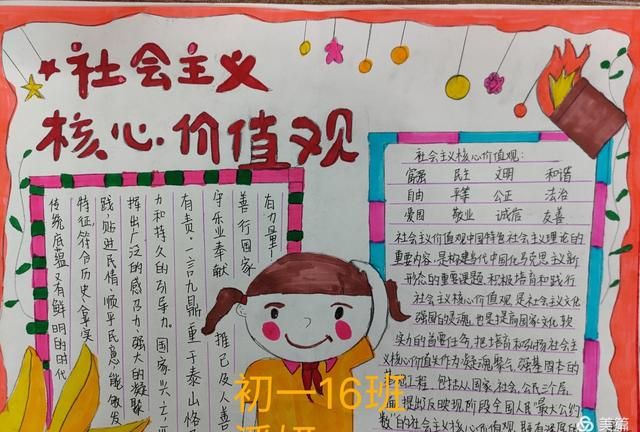 社会主义
核心价值观
有力量！
善行国家
守乐业奉献
有责·一言九鼎重于泰山恪
力和持久的引导力。国家兴亡
推己及人善
挥出广泛的感召力、强大的凝聚
践，贴进民情，顺乎民意，能够发
特征，符合历史
传统底蕴又有鲜明的时代
社会主义核心价值观：
富强 民主 文明 和谐
自由 平等 公正 法治
爱国 敬业 诚信 友善
社会主义价值观中国特色社会主义理论的
重要内容，是构建当代中国化马克思主义新
形态的重要课题，积极培育和践行
社会主义核心价值观，是社会主义文化
强国的灵魂，也是提高国家文化软
实力的首要任务，把培育和弘扬社会主
义核心价值关作为凝魂聚气、强基固本的
工程，包括从国家、社会、公民三个层
面，提出反映现阶段全国人民“最大公约
数”的社会主义核心价值观，既有深厚的
初一16班
美篇